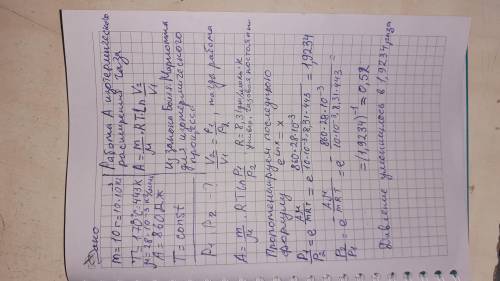 Дано
m = 10 г = 10·10⁻³ кг
T = 170°C = 443 K
μ = 28·10⁻³ кг/моль
A = 860 Дж
T = const
P₁ P₂ - ?
Работа А изотермического
расширения газа
A = m/μ RT ln V₂/V₁
Из закона Бойля Мариотта
для изотермического
процесса
V₂/V₁ = P₁/P₂, тогда работа
A = m/μ RT ln P₁/P₂ R = 8,31 Дж/моль·К
универ. газовая постоянная
Пропотенцируем последнюю
формулу e^ln x = x
P₁/P₂ = e^(Aμ/mRT) = e^(860·28·10⁻³/10·10⁻³·8,31·443) = 1,9234
P₂/P₁ = e^(-Aμ/mRT) = e^(-860·28·10⁻³/10·10⁻³·8,31·443) =
= (1,9234)⁻¹ = 0,52
Давление уменьшилось в 1,9234 раза